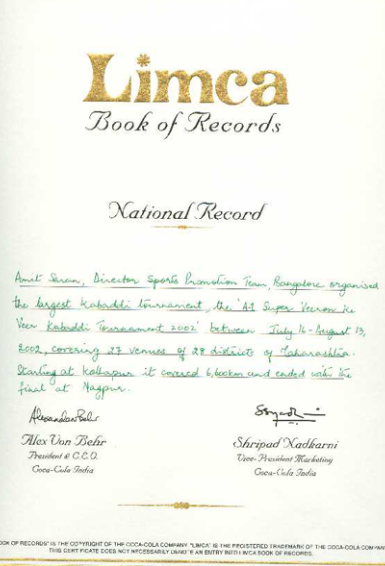 Limca
Book of Records
National Record
Amit Saran, Director Sports Promotion Team, Bangalore organised
the largest Kabaddi tournament, the 'A1 Super Veeron Ke
Veer Kabaddi Tournament 2002' between July 16 - August 13,
2002, covering 27 venues of 28 districts of Maharashtra.
Starting at Kolhapur it covered 6,600km and ended with the
final at Nagpur.
Alex Von Behr
President & C.E.O.
Coca-Cola India
Shripad Nadkarni
Vice-President Marketing
Coca-Cola India
OOK OF RECORDS" IS THE COPYRIGHT OF THE COCA-COLA COMPANY. "LIMCA" IS THE REGISTERED TRADEMARK OF THE COCA-COLA COMPAN
THIS CERTIFICATE DOES NOT NECESSARILY DENOTE AN ENTRY INTO LIMCA BOOK OF RECORDS.